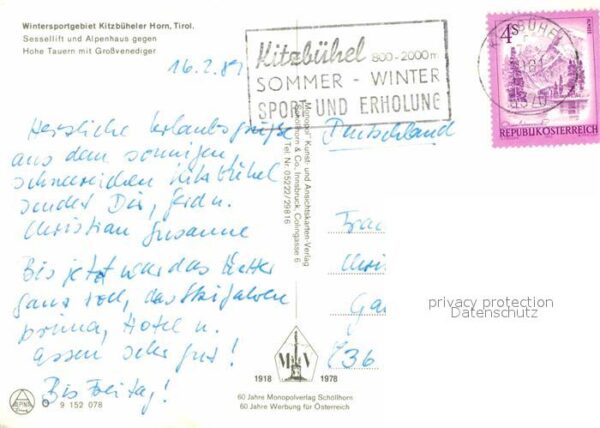 Wintersportgebiet Kitzbüheler Horn, Tirol.
Sessellift und Alpenhaus gegen
Hohe Tauern mit Großvenediger
16.2.81
Herzliche Urlaubsgrüße
aus dem sonnigen
schneereichen Kitzbühel
sendet Dir, Gerd u.
Christian Susanne
Bis jetzt war das Wetter
ganz toll, das Skifahren
prima, Hotel u.
Essen sehr gut!
Bis Freitag!
9 152 078
Kitzbühel 800-2000m
SOMMER - WINTER
SPORT UND ERHOLUNG
4S
KITZBÜHEL
6370
REPUBLIK ÖSTERREICH
Monopol Kunst- und Ansichtskarten-Verlag
Schöllhorn & Co., Innsbruck, Colingasse 6
Tel Nr. 05222/29816
Deutschland
Frau
Chris
Ga
736
privacy protection
Datenschutz
1918 1978
60 Jahre Monopolverlag Schöllhorn
60 Jahre Werbung für Österreich